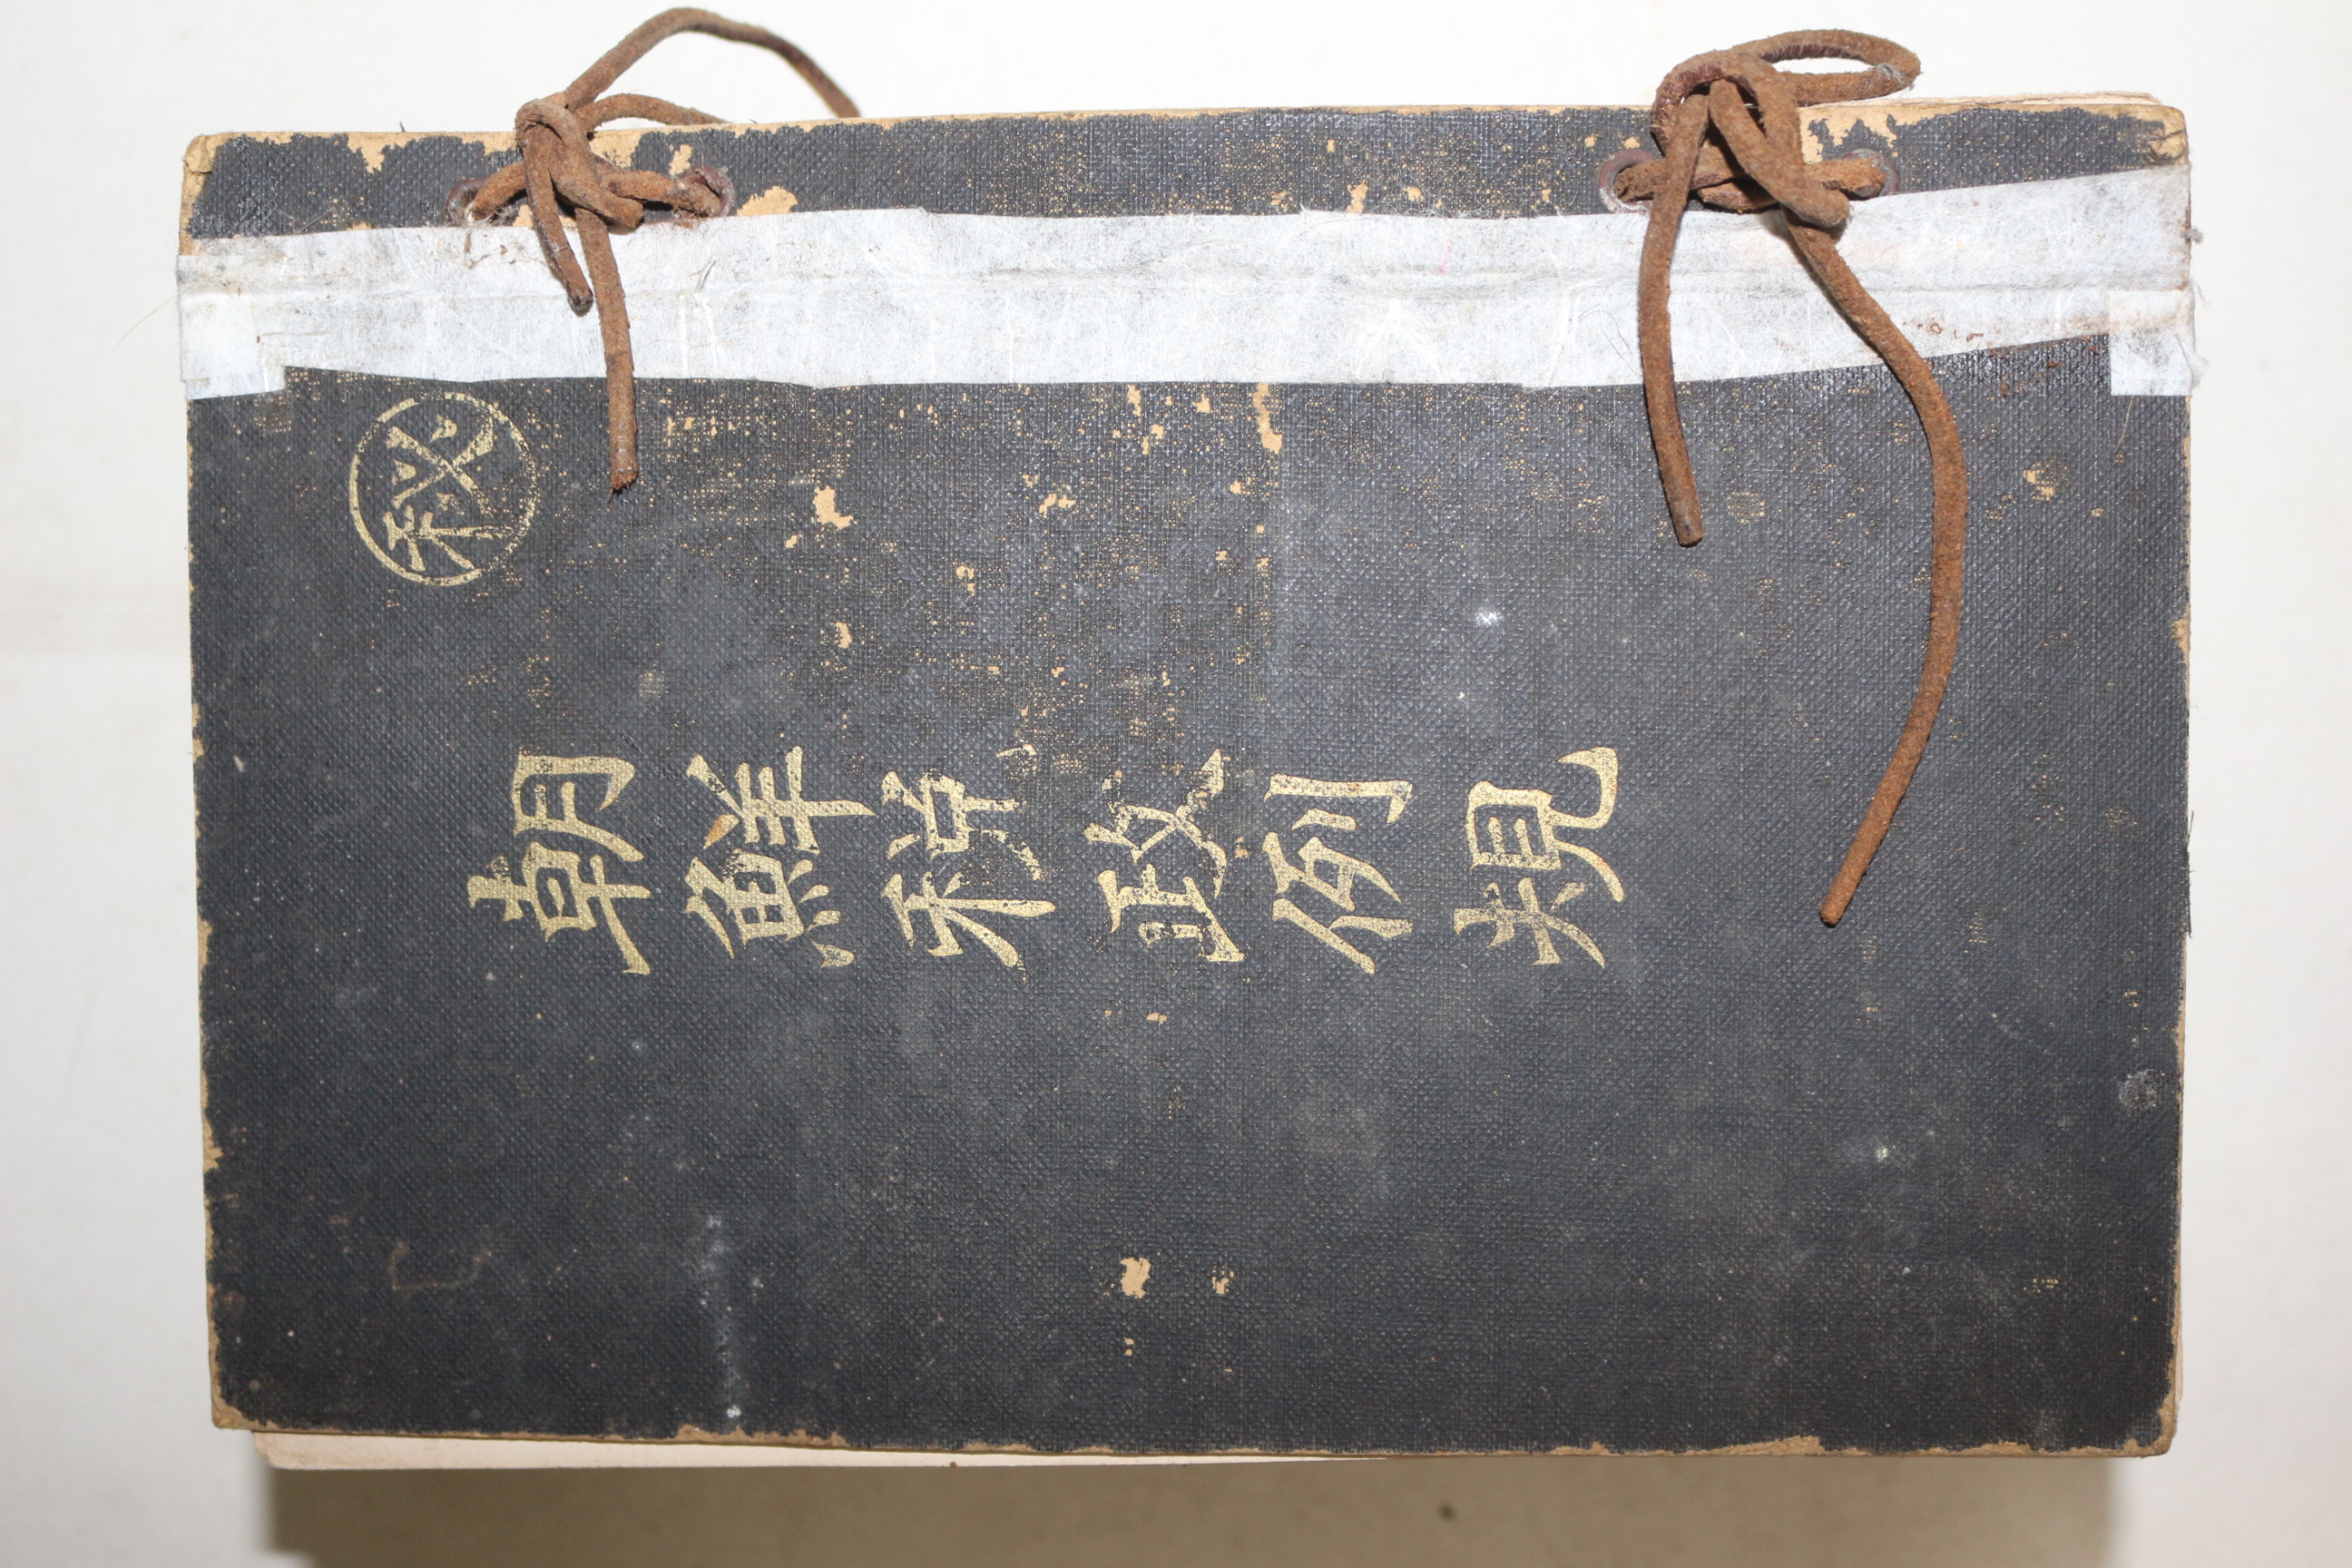 秘
朝鮮税政例規